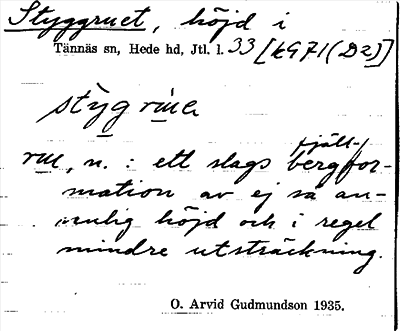 Styggruet, höjd i
Tännäs sn, Hede hd, Jtl. l. 33 [kG71(D2)]
stygrue
ru, n. : ett slags fjäll-/
bergfor-
mation av ej så an-
senlig höjd och i regel
mindre utsträckning.
O. Arvid Gudmundson 1935.